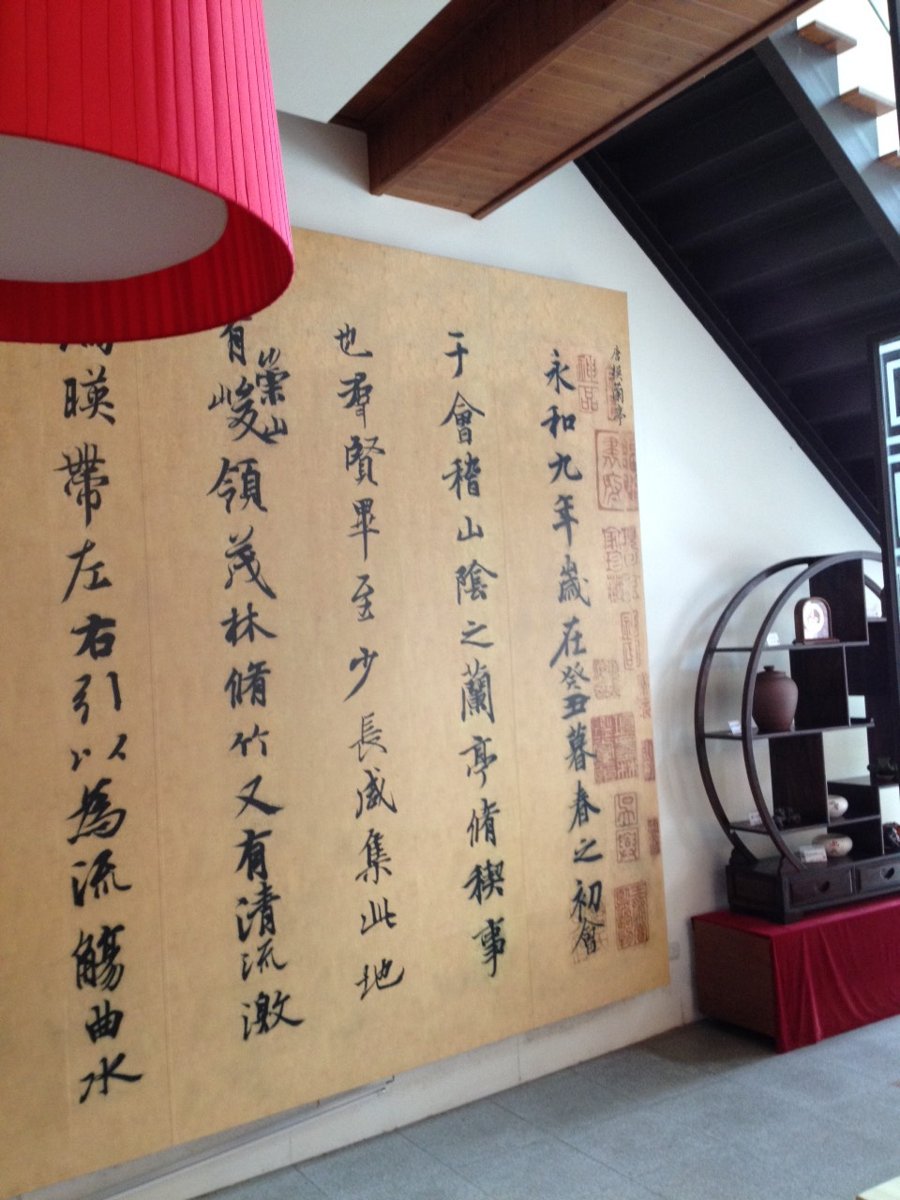 唐摸蘭亭
神品
永和九年歲在癸丑暮春之初會
于會稽山陰之蘭亭脩稧事
也羣賢畢至少長咸集此地
有崇山峻領茂林脩竹又有清流激
暎帶左右引以為流觴曲水